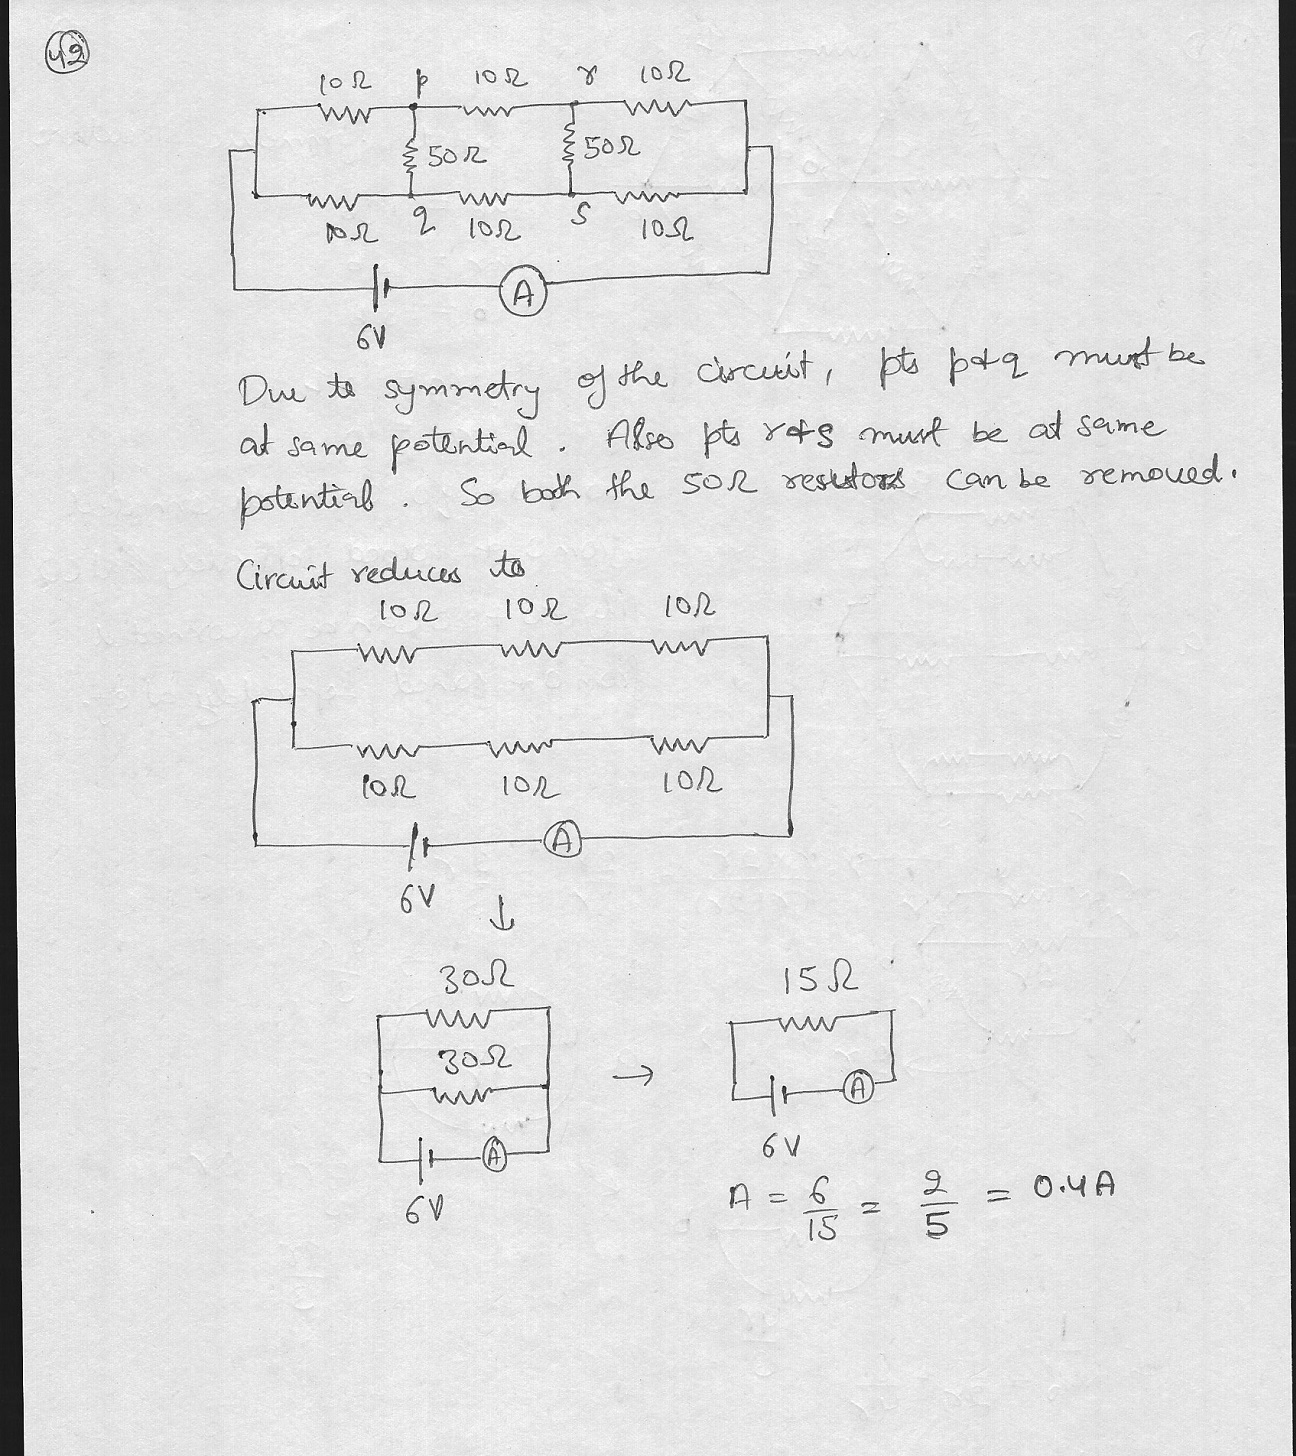 42
10Ω p 10Ω r 10Ω
50Ω 50Ω
10Ω q 10Ω s 10Ω
A
6V
Due to symmetry of the circuit, pts p & q must be
at same potential. Also pts r & s must be at same
potential. So both the 50Ω resistors can be removed.
Circuit reduces to
10Ω 10Ω 10Ω
10Ω 10Ω 10Ω
A
6V
↓
30Ω 15Ω
30Ω
→ A
A 6V
6V
A = 6/15 = 2/5 = 0.4A